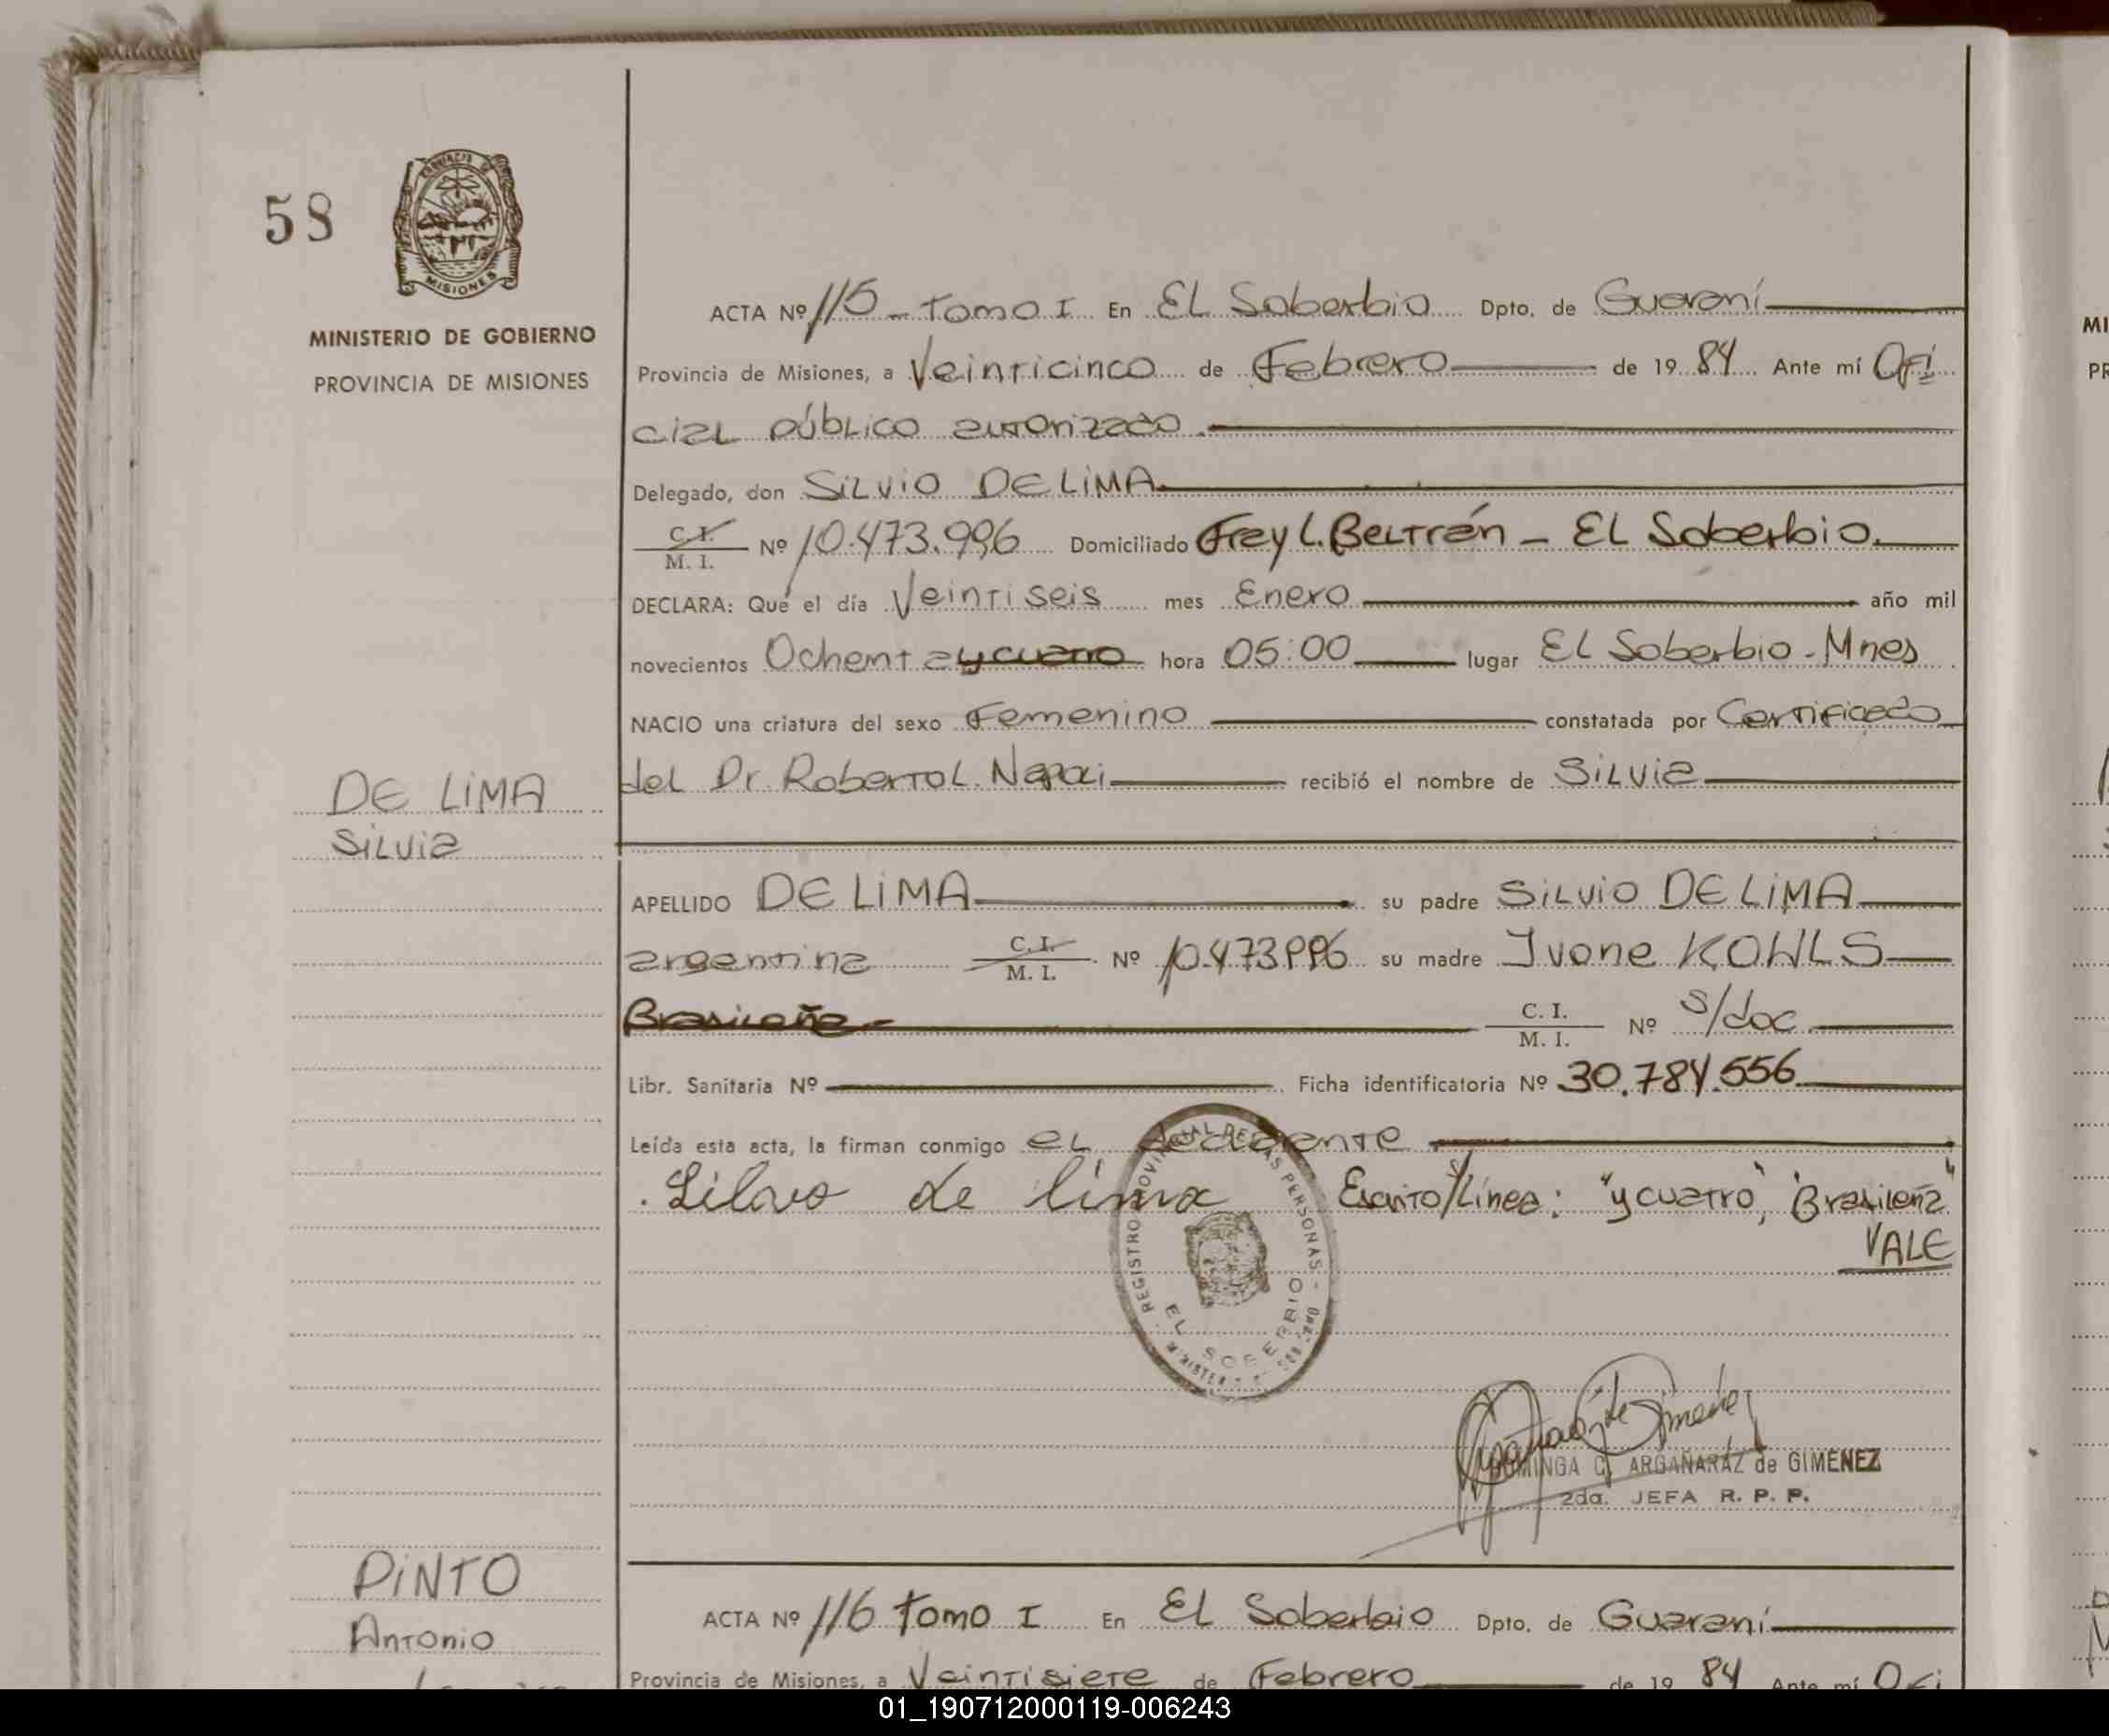 58
MISIONES
MINISTERIO DE GOBIERNO
PROVINCIA DE MISIONES
ACTA Nº 115 - Tomo I En EL Soberbio Dpto. de Guaraní
Provincia de Misiones, a Veinticinco de Febrero de 19 84 Ante mí Ofi
cial público autorizado.
Delegado, don SiLviO DE LiMA
C. I. M. I. Nº 10.473.996 Domiciliado Fray L. Beltrán - EL Soberbio.
DECLARA: Que el día Veintiseis mes Enero año mil
novecientos Ochenta y cuatro hora 05:00 lugar EL Soberbio - Mnes
NACIO una criatura del sexo Femenino constatada por Certificado
del Dr. Roberto L. recibió el nombre de Silvia
DE LiMA
Silvia
APELLIDO DE LiMA su padre SiLviO DE LiMA
argentina C. I. M. I. Nº 10.473.996 su madre Ivone KOHLS
Brasileña - C. I. M. I. Nº s/doc
Libr. Sanitaria Nº Ficha identificatoria Nº 30.784.556
Leída esta acta, la firman conmigo el
de lima Escrito s/Línea: "y cuatro", "Brasileña"
VALE
REGISTRO PROVINCIAL DE LAS PERSONAS -
EL SOBERBIO
DOMINGA C. ARGAÑARAZ de GIMENEZ
2da. JEFA R. P. P.
PiNTO
Antonio
ACTA Nº 116 Tomo I En EL Soberbio Dpto. de Guaraní
Provincia de Misiones, a Veintisiete de Febrero de 19 84 Ante mí Ofi
MI
PR
01_190712000119-006243